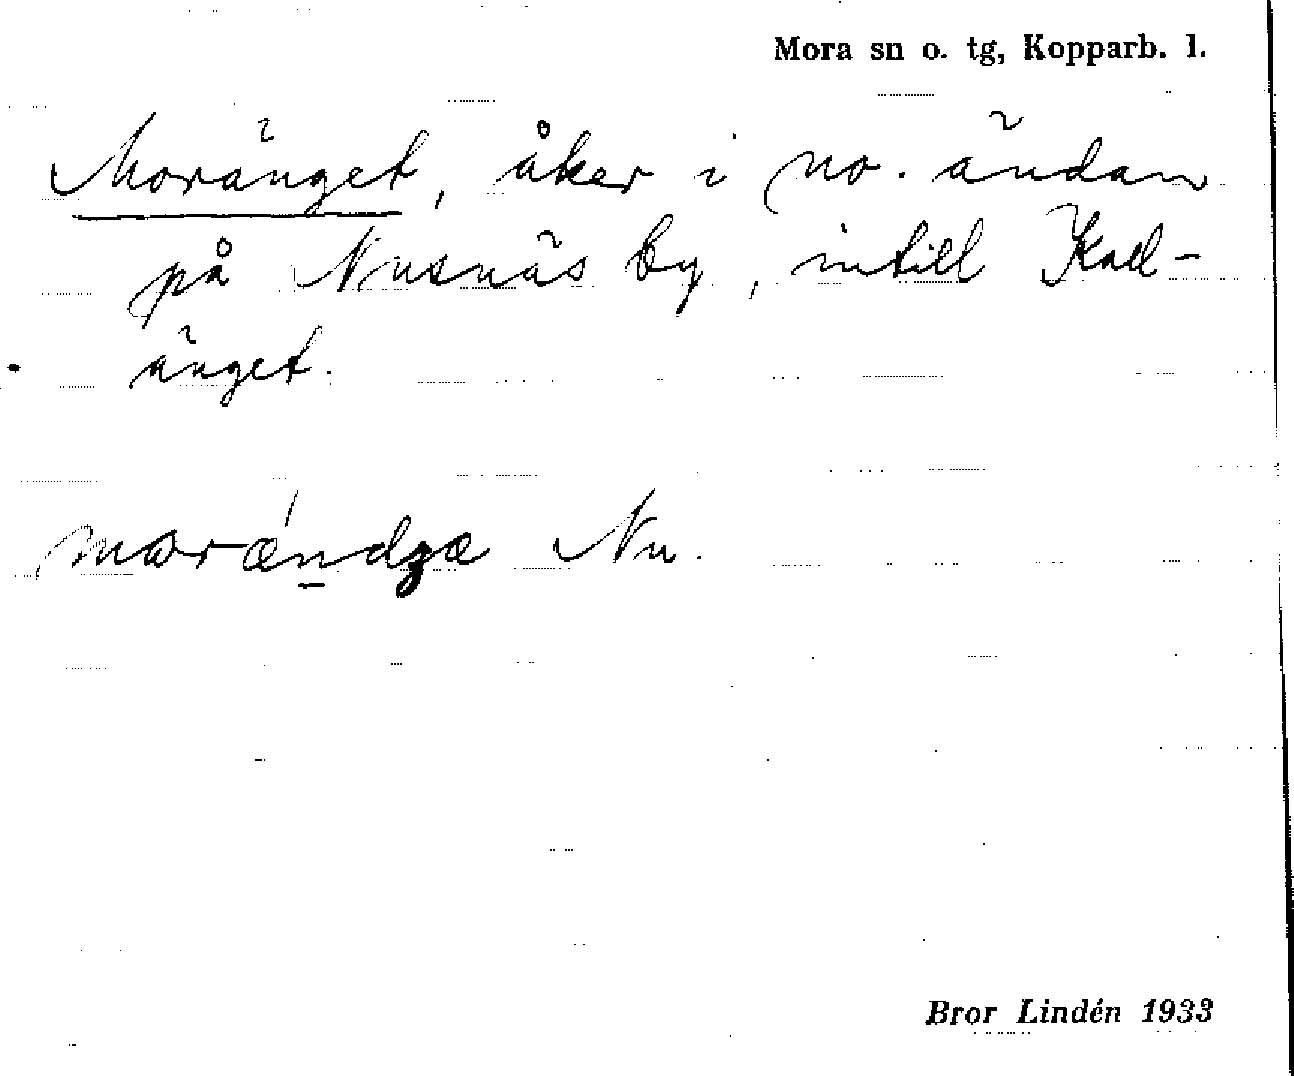 Mora sn o. tg, Kopparb. l.
Moränget, åker i no. ändan
på Nusnäs by, intill Kall-
änget.
marǽndʒæ Nu.
Bror Lindén 1933